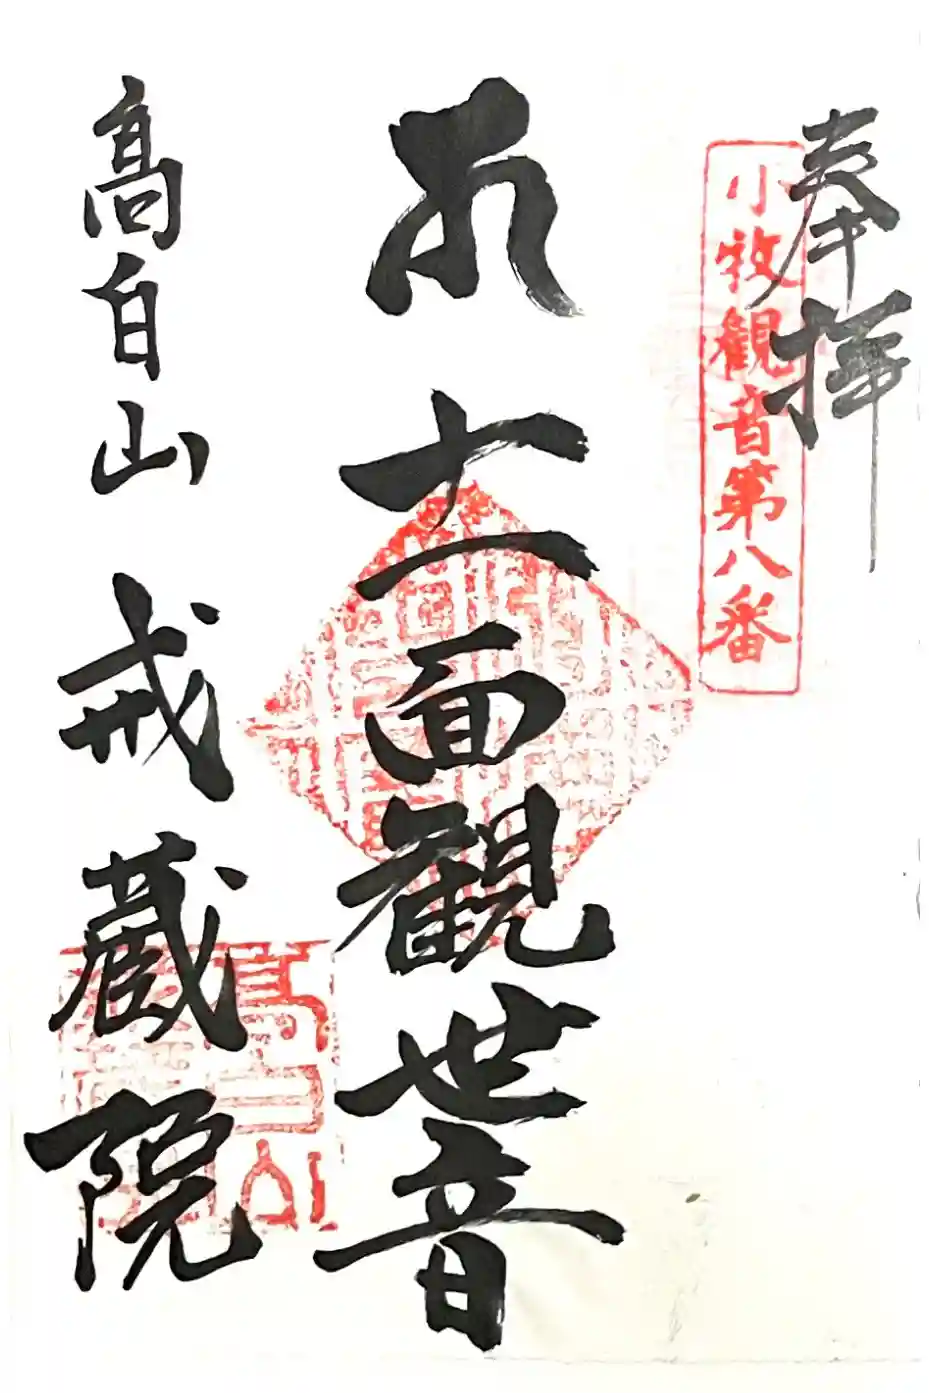 奉拝
小牧観音第八番
十一面観世音
高白山 戒蔵院